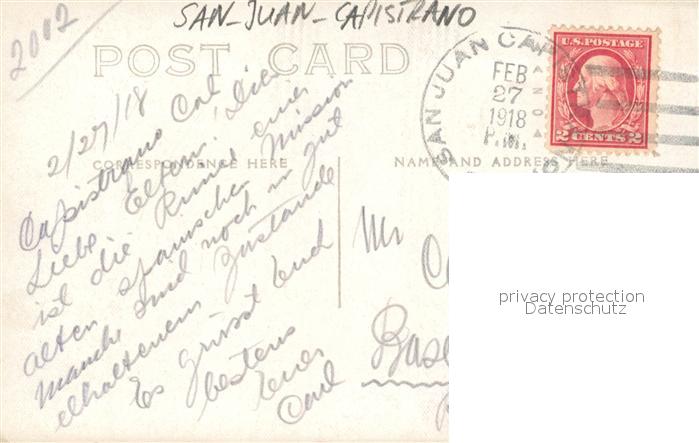 2002
SAN-JUAN-CAPISTRANO
POST CARD
U.S. POSTAGE
2 CENTS 2
SAN JUAN CAP
FEB
27
1918
P.M.
CORRESPONDENCE HERE
NAME AND ADDRESS HERE
2/27/18
Capistrano Cal
Liebe Eltern! Dies
ist die Ruine einer
alten spanischen Mission
Manche sind noch in gut
erhaltenem Zustande
Es grüsst Euch
bestens
Euer
Carl
Mr
Bas
privacy protection
Datenschutz